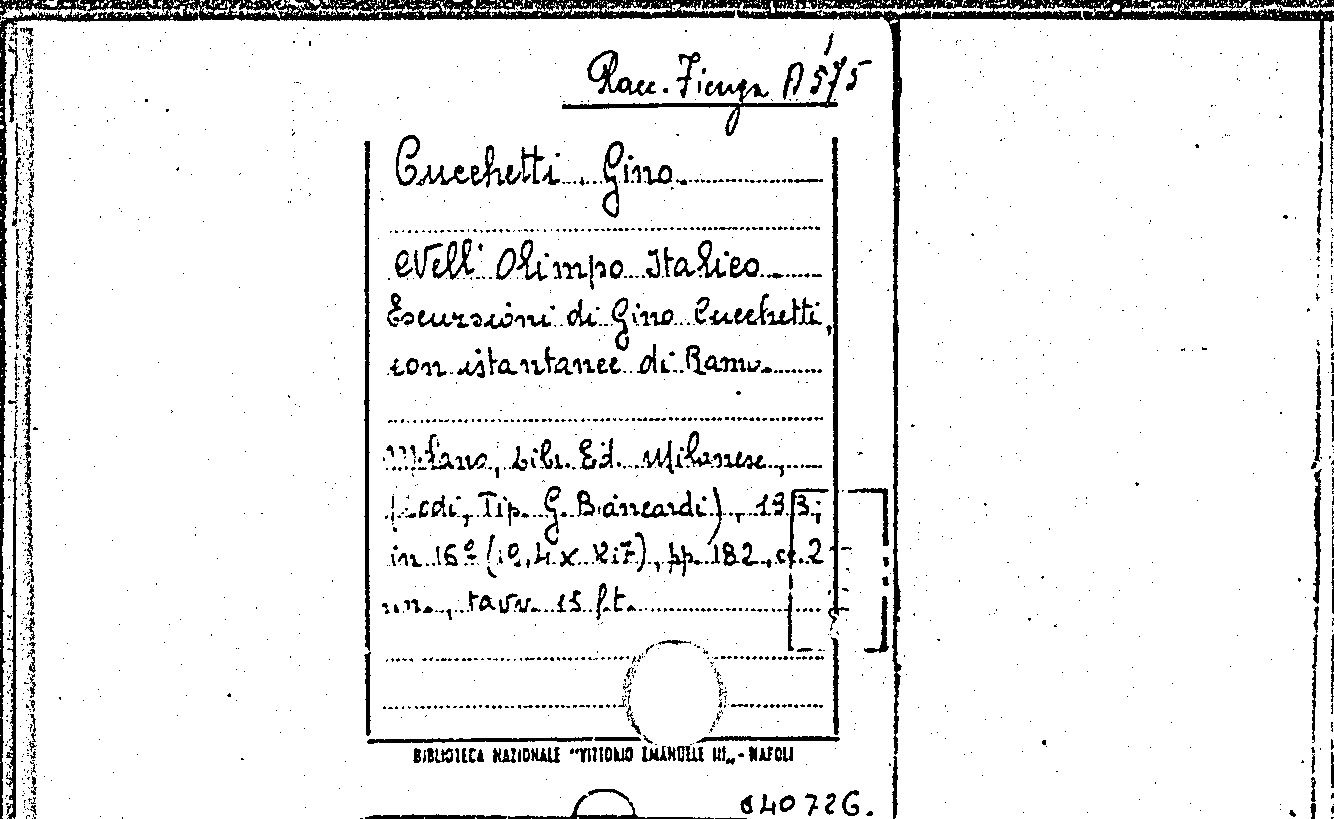 Racc. Fienga A 575
Cucchetti, Gino
Nell' Olimpo Italico
Escursioni di Gino Cucchetti,
con istantanee di Ramo.
Milano, Libr. Ed. Milanese,
(Lodi, Tip. G. Biancardi),
in 16º pp. 182, cc. 2
nn., tavv. 15 f.t.
BIBLIOTECA NAZIONALE "VITTORIO EMANUELE III„ - NAPOLI